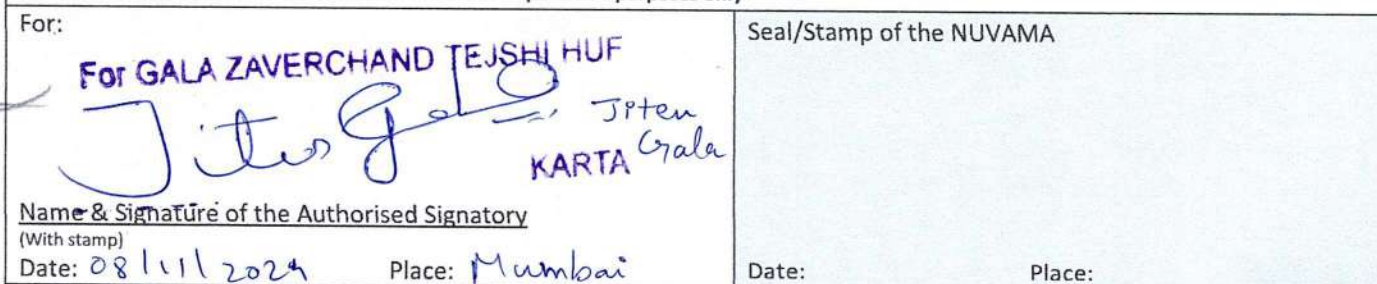 For:
For GALA ZAVERCHAND TEJSHI HUF
Jiten Gala
Jiten
Gala
KARTA
Name & Signature of the Authorised Signatory
(With stamp)
Date: 08/11/2024 Place: Mumbai
Seal/Stamp of the NUVAMA
Date: Place: